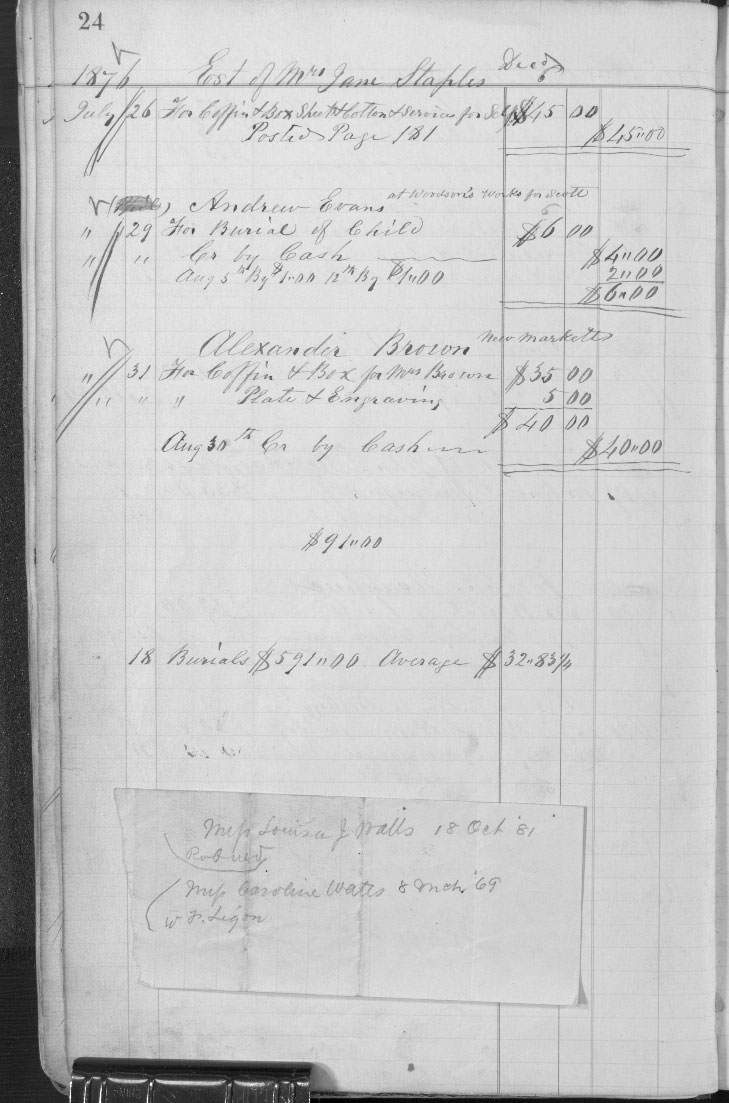 24
1876 Est of Mrs Jane Staples Decd
July 26 For Coffin & Box Sheet & Cotton & Services for Self $45 00
Posted Page 181 $45"00
Andrew Evans at Woodson's works for Scott
" 29 For Burial of Child $6 00
" " Cr by Cash $4"00
Aug 5th By $1"00 12th By $1"00 2"00
$6"00
Alexander Brown New Marketts
" 31 For Coffin & Box for Mrs Brown $35 00
" " " Plate & Engraving 5 00
$40 00
Aug 30th Cr by Cash $40"00
$91"00
18 Burials $591"00 Average $32"83 1/4
Miss Louisa J Watts 18 Oct '81
Miss Caroline Watts 8 Mch '69
W F. Ligon